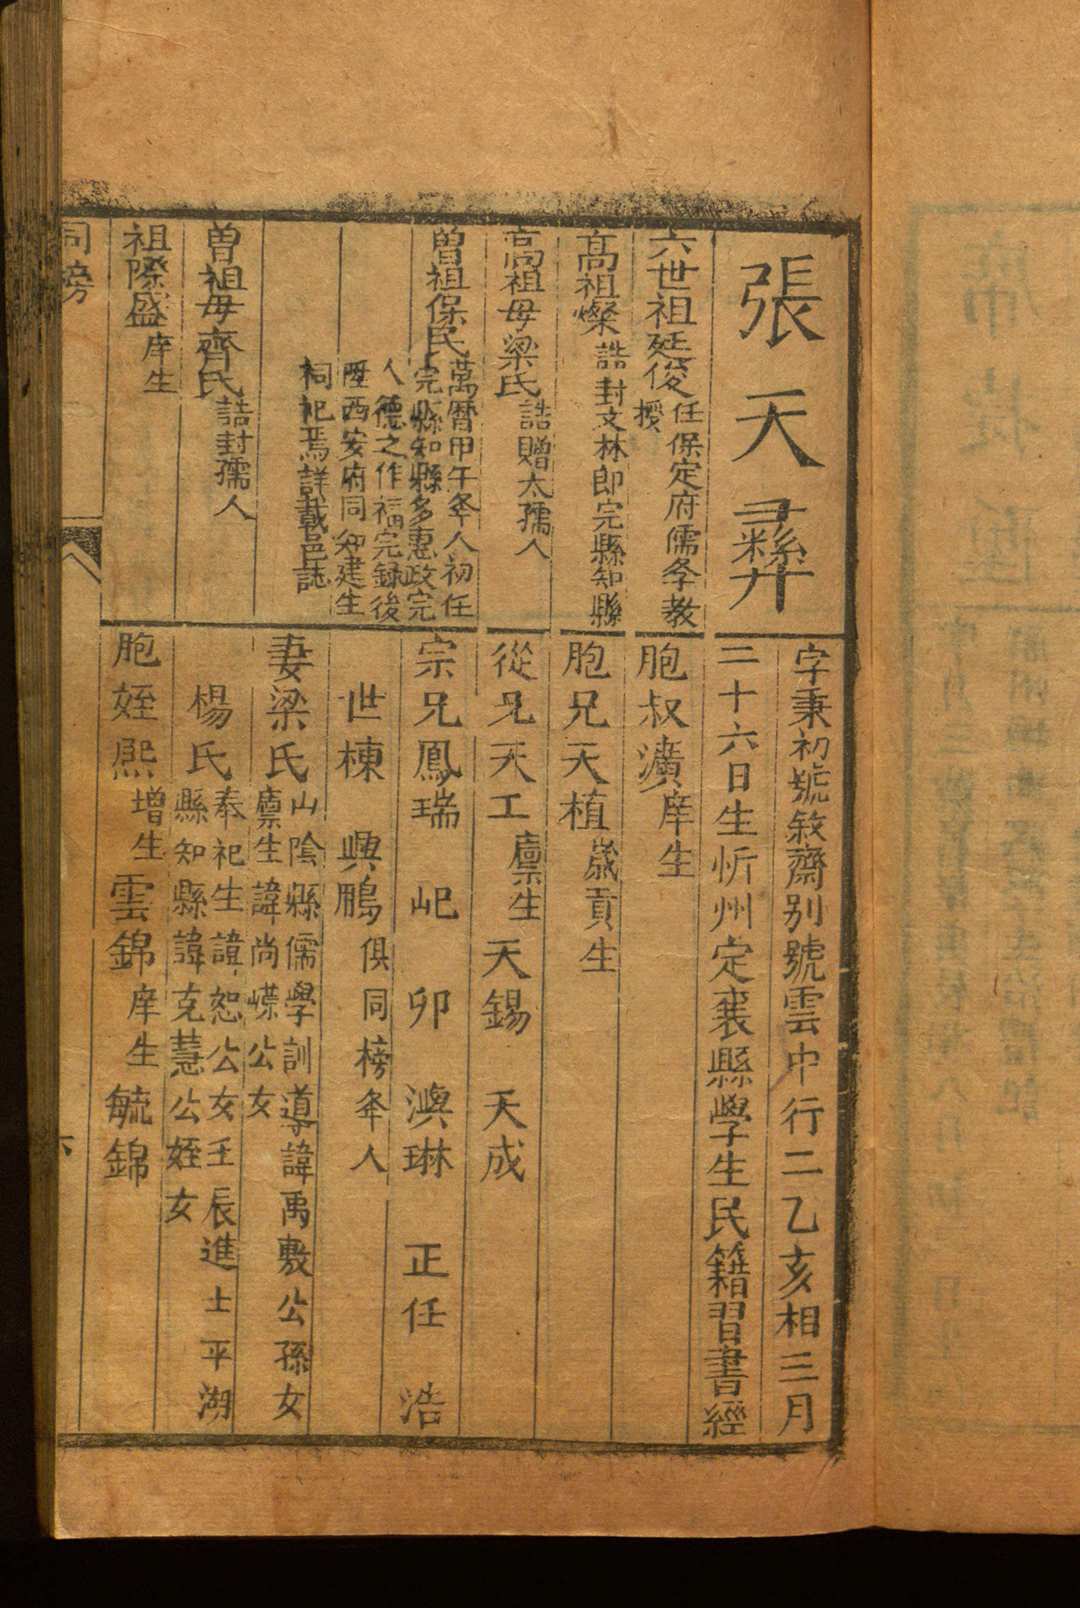 張天彛
字秉初號敘齋别號雲中行二乙亥相三月
二十六日生忻州定襄縣學生民籍習書經
六世祖延俊任保定府儒斈教
授
胞叔瀇庠生
高祖燦誥封文林郎完縣知縣
胞兄天植歲貢生
高祖母梁氏誥贈太孺人
從兄天工廩生天錫 天成
曽祖保民萬曆甲午举人初任
完縣知縣多惠政完
人德之作福完録後
陞西安府同知建生
祠祀焉詳載邑誌
宗兄鳳瑞 屺 卯 澳琳 正任 浩
世棟 興鵬俱同榜举人
曽祖母齊氏誥封孺人
妻梁氏山陰縣儒學訓導諱禹敷公孫女
廩生諱尚嶫公女
楊氏奉祀生諱恕公女壬辰進士平湖
縣知縣諱克慧公姪女
祖際盛庠生
胞姪熙增生雲錦庠生毓錦
同榜
六